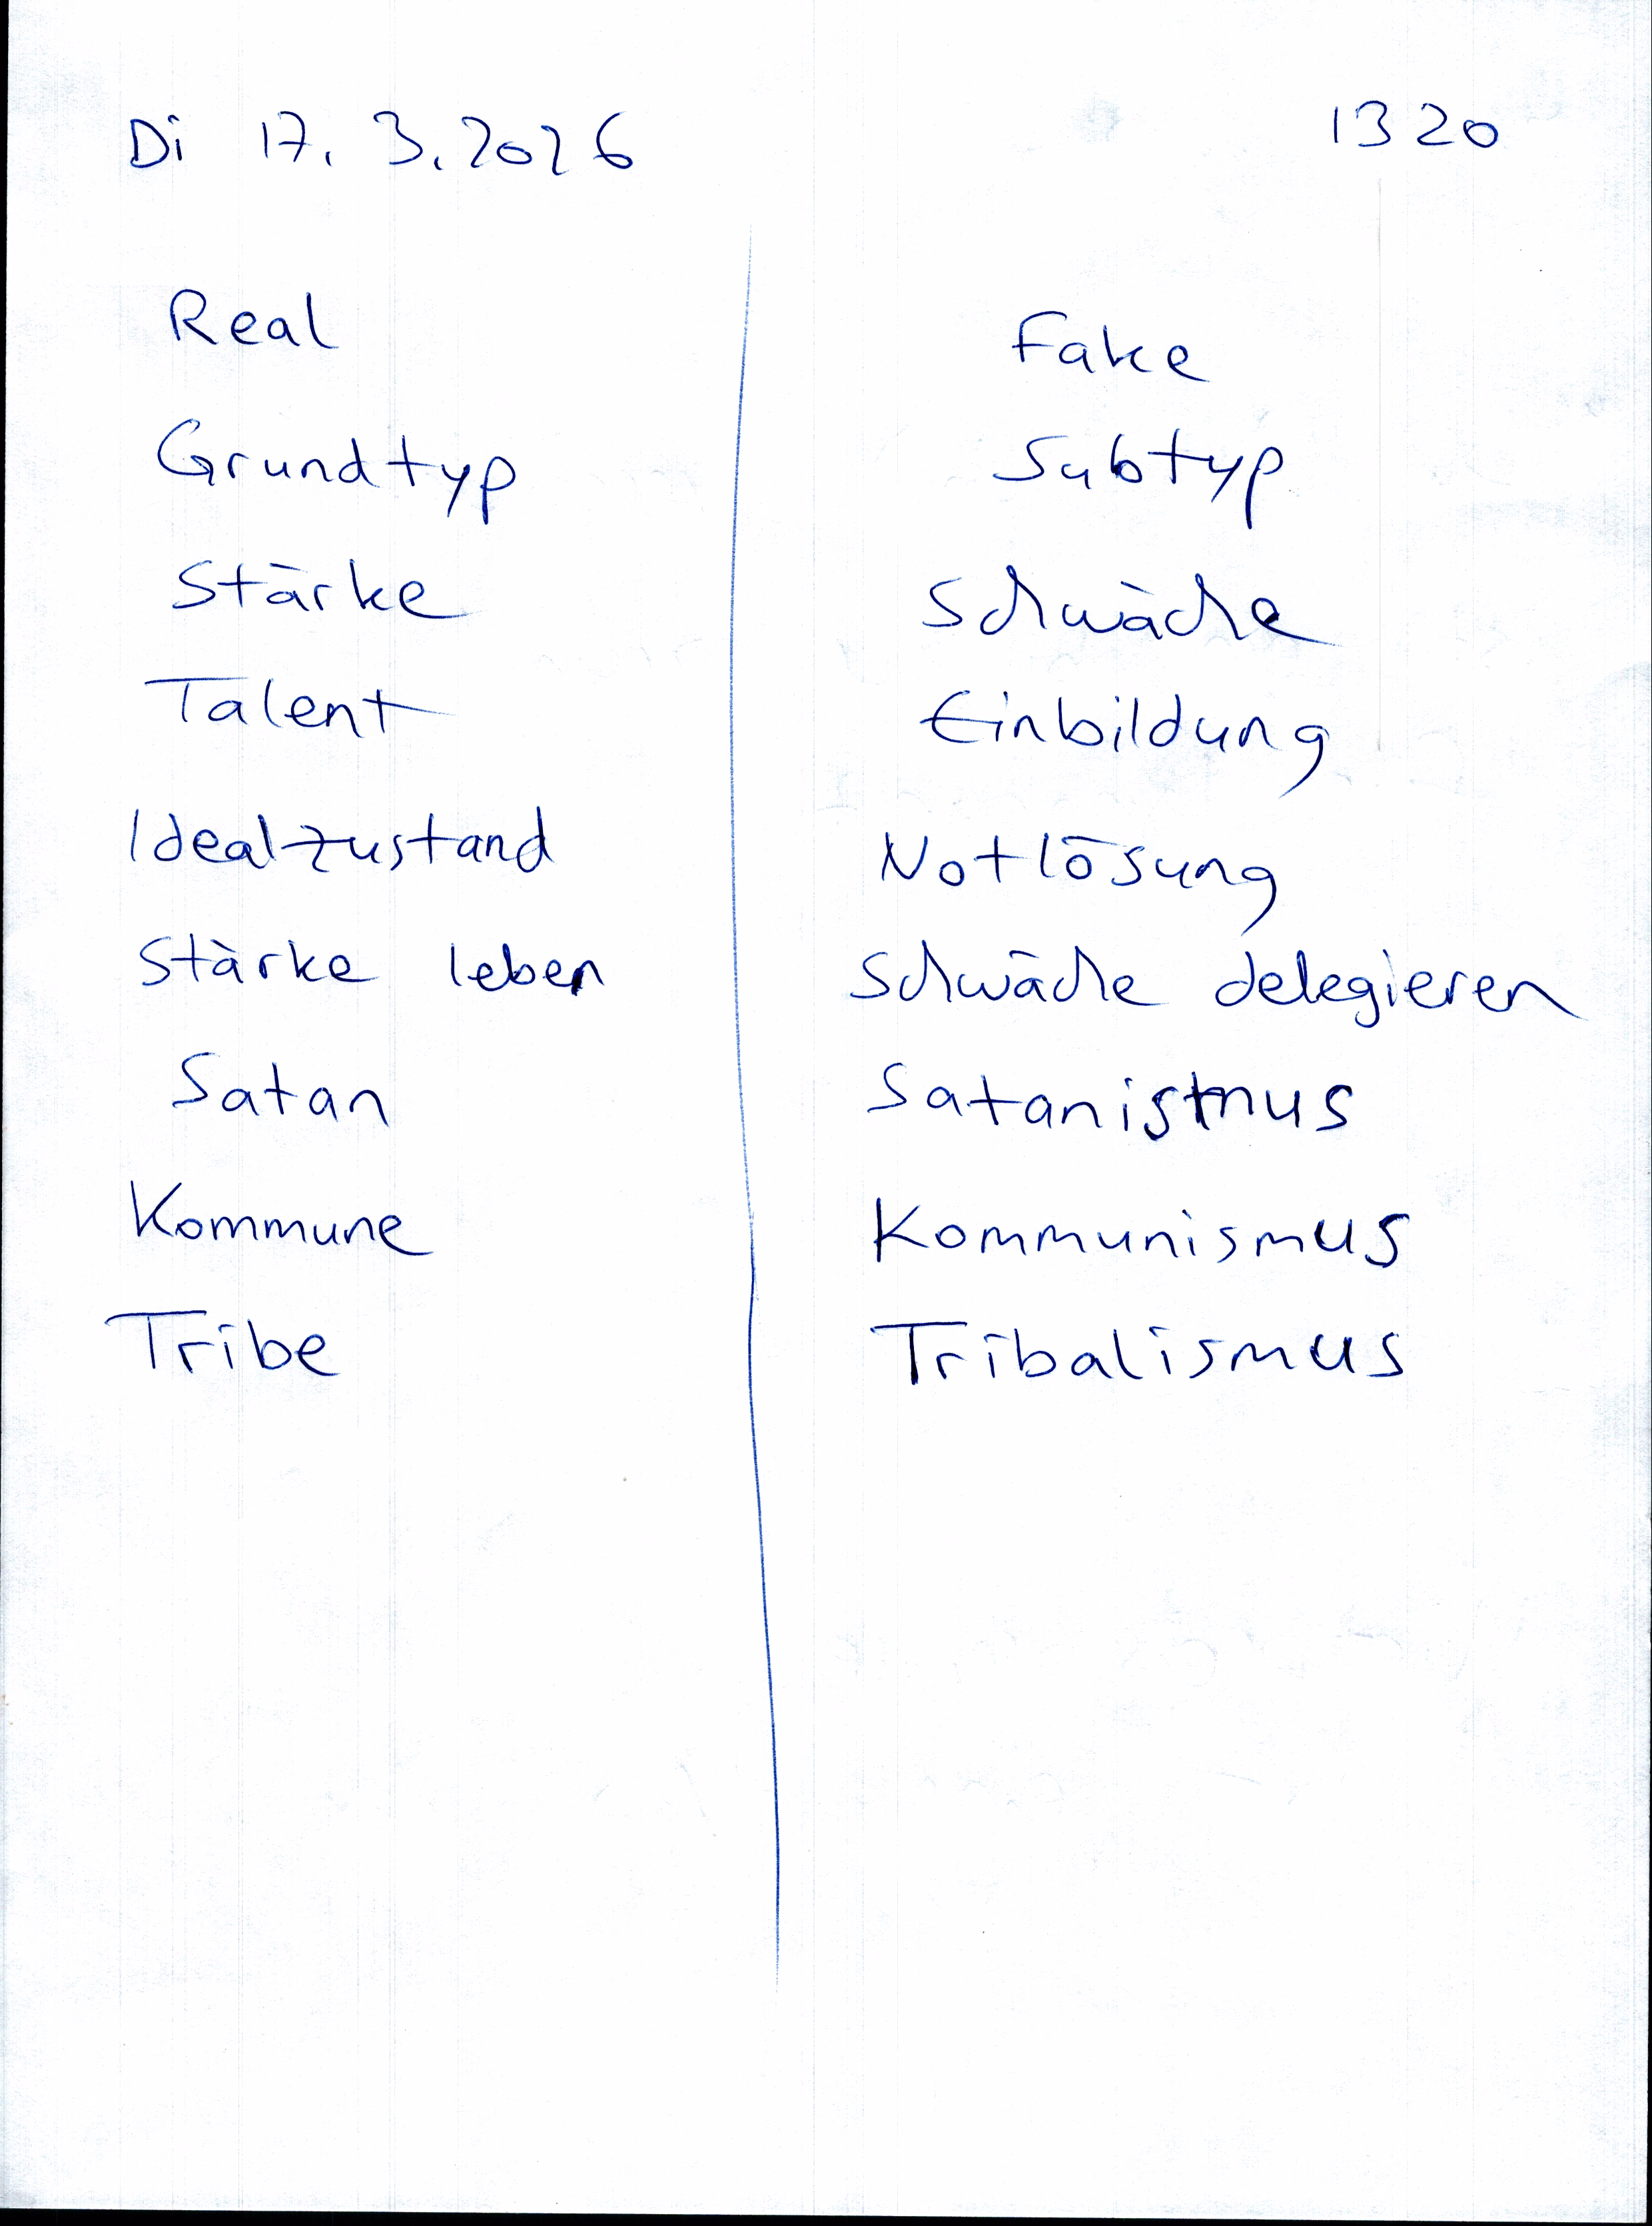 Di 17. 3. 2026 1320
Real Fake
Grundtyp Subtyp
Stärke Schwäche
Talent Einbildung
Idealzustand Notlösung
Stärke leben Schwäche delegieren
Satan Satanismus
Kommune Kommunismus
Tribe Tribalismus